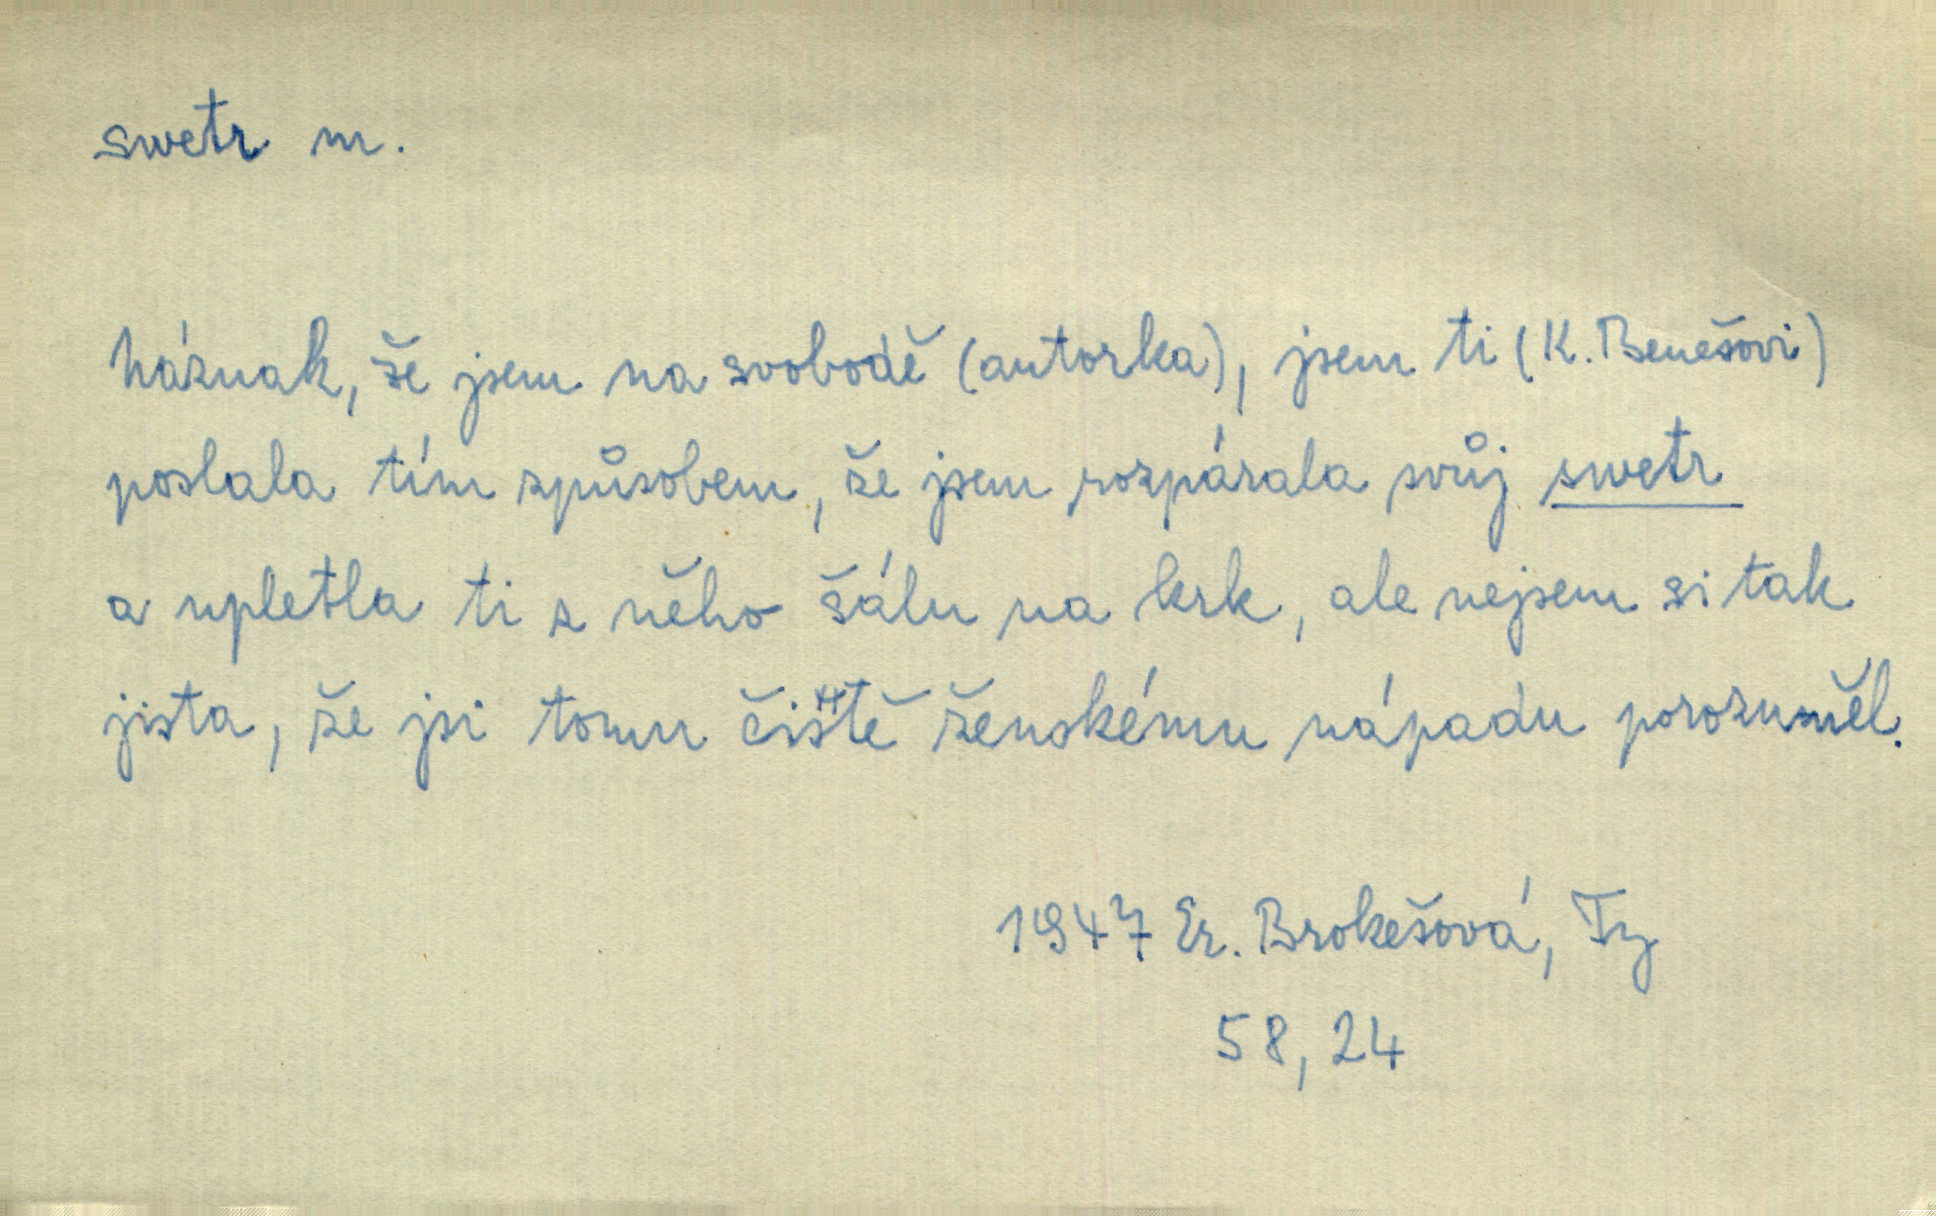 swetr m.
Náznak, že jsem na svobodě (autorka), jsem ti (K. Benešovi)
poslala tím způsobem, že jsem rozpárala svůj swetr
a upletla ti z něho šálu na krk, ale nejsem si tak
jista, že jsi tomu čistě ženskému nápadu porozuměl.
1947 Er. Brokešová, Ty
58, 24